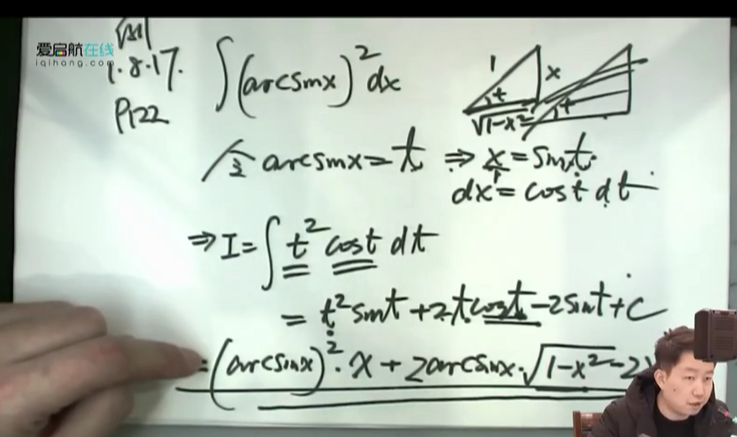 爱启航在线
iqihang.com
1.8.17.
P122
∫(arcsinx)²dx
1
x
t
√1-x²
t
令 arcsinx = t ⇒ x = sint.
dx = cost dt
⇒ I = ∫ t² cost dt
= t² sint + 2t cost - 2sint + C
= (arcsinx)² · x + 2arcsinx · √1-x² - 2